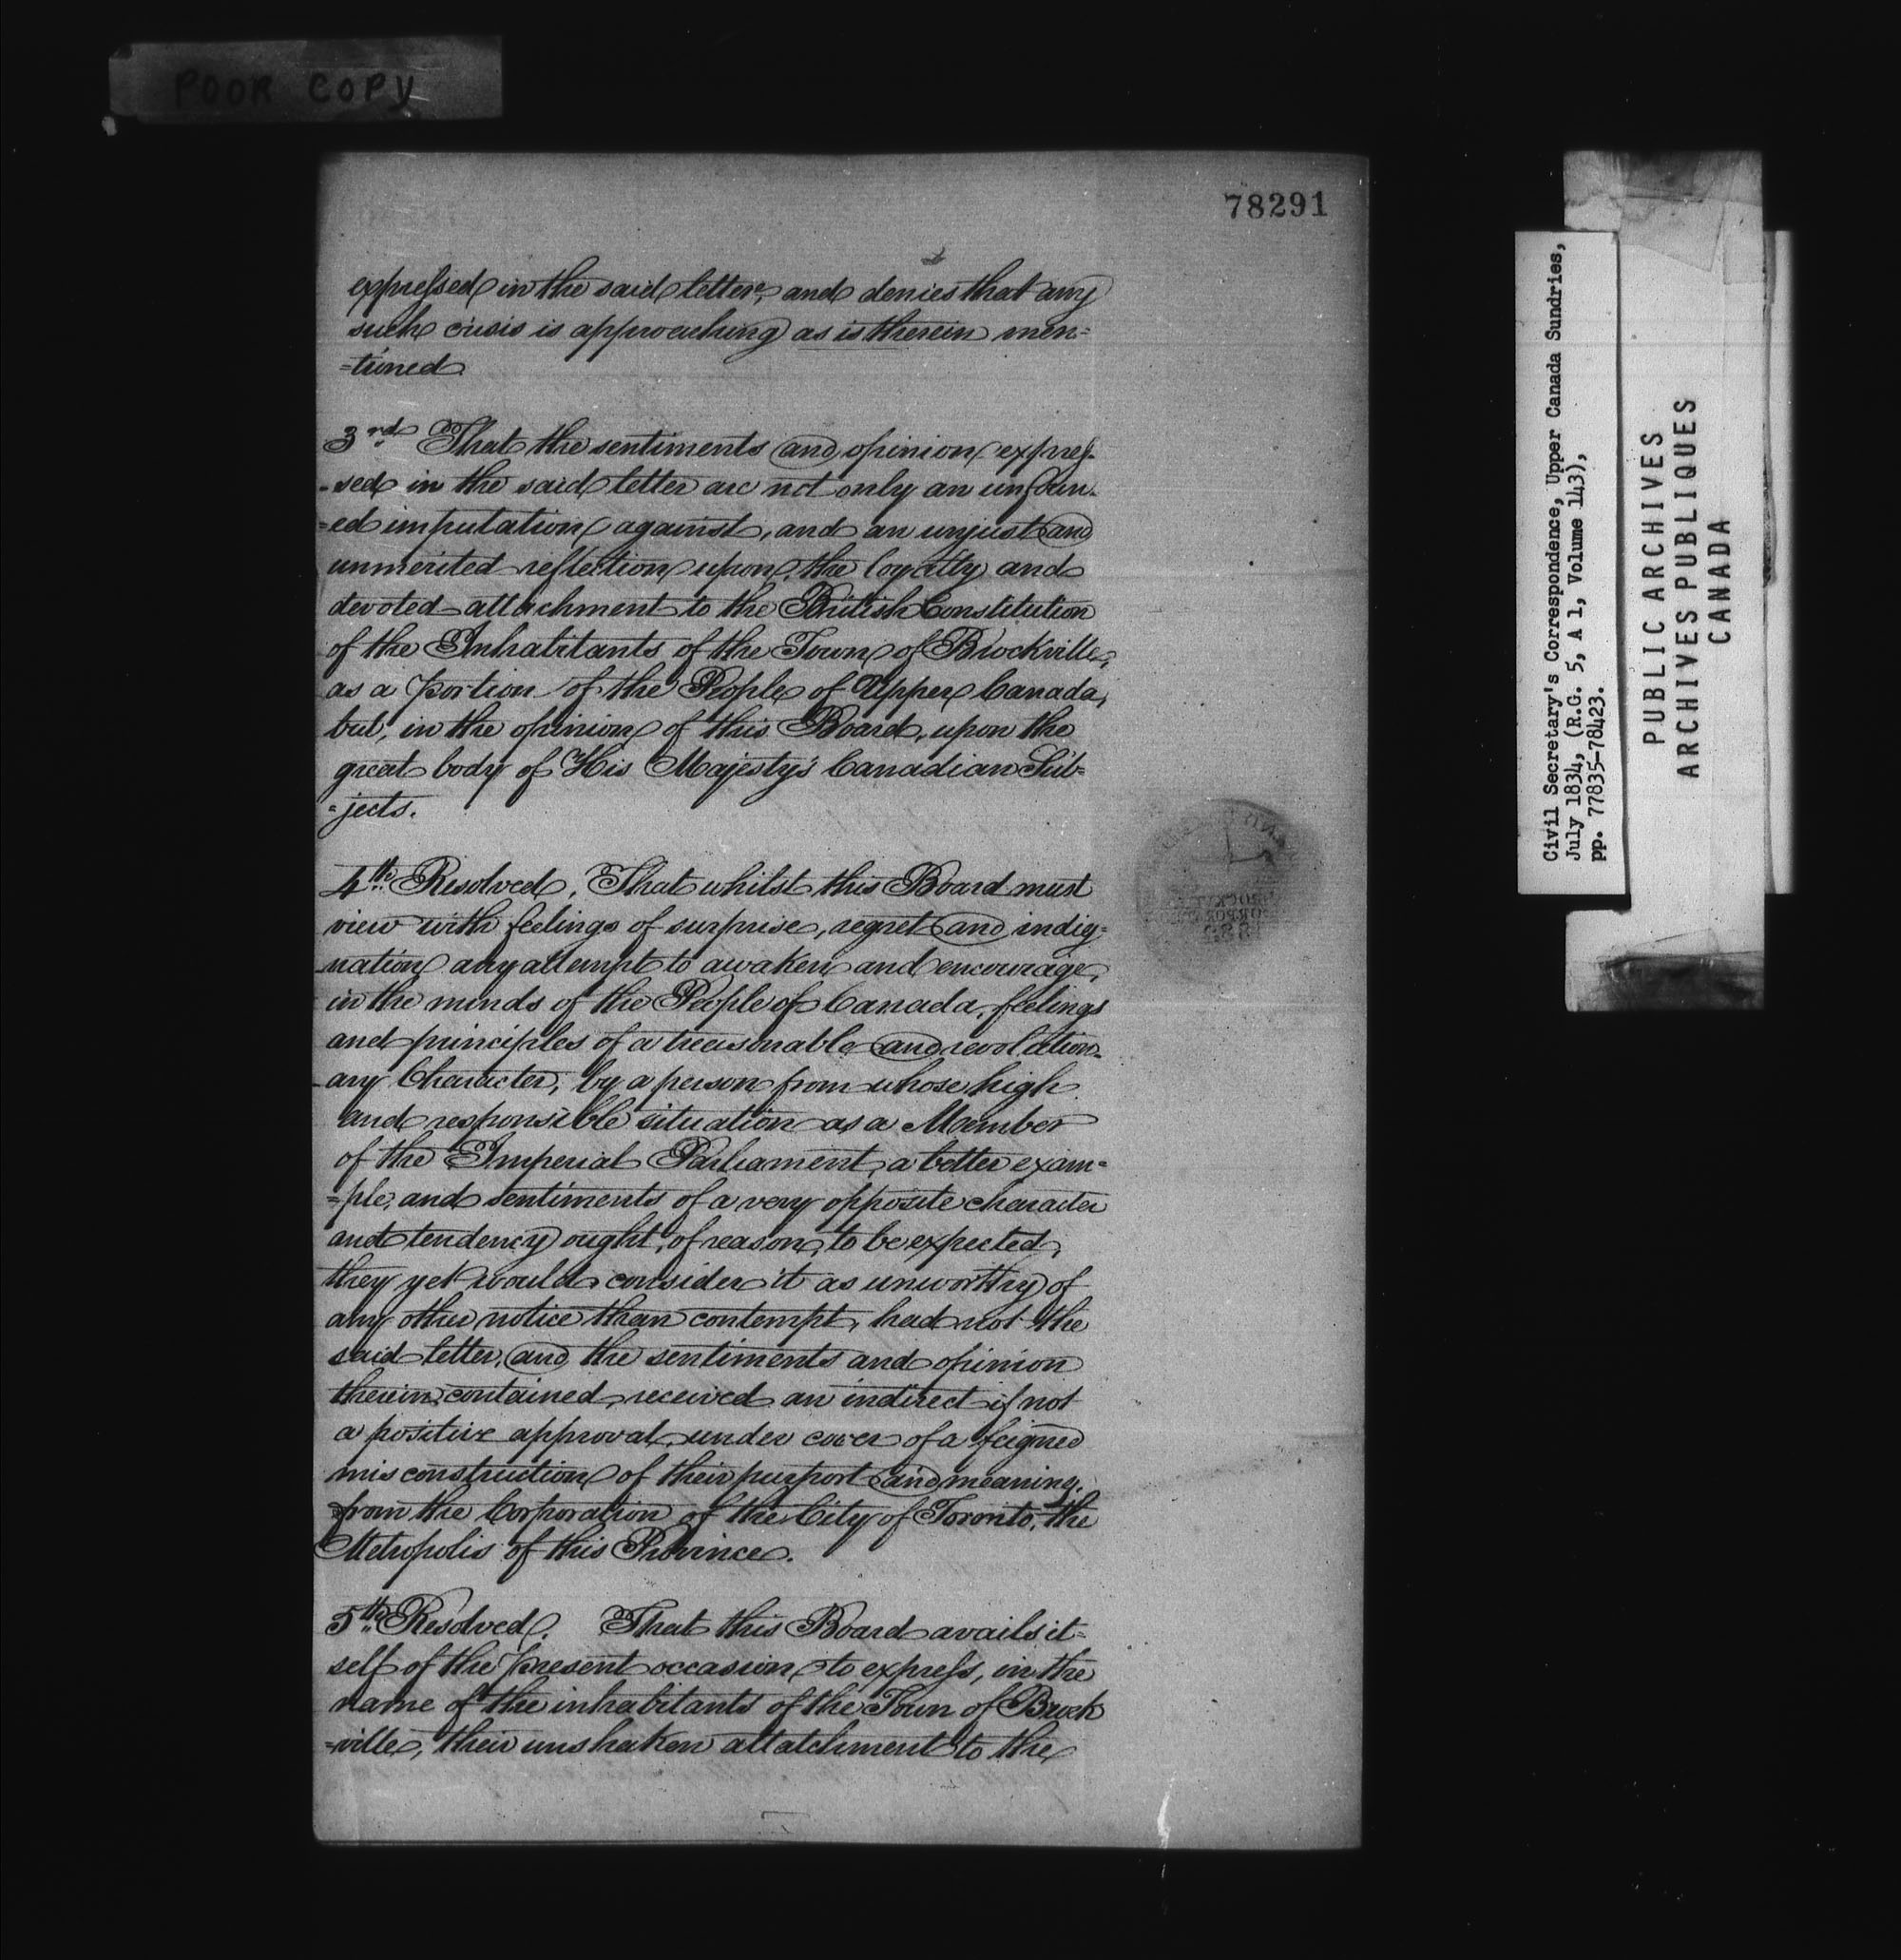 POOR COPY
78291
expressed in the said letter, and denies that any
such crisis is approaching as is therein men=
=tioned.
3rd That the sentiments and opinion expres-
-sed in the said letter are not only an unfoun-
=ed imputation against, and an unjust and
unmerited reflection upon, the loyalty and
devoted attachment to the British Constitution
of the Inhabitants of the Town of Brockville,
as a Portion of the People of Upper Canada,
but, in the opinion of this Board, upon the
great body of His Majesty's Canadian Sub=
=jects.
4th Resolved, That whilst this Board must
view with feelings of surprise, regret and indig=
-nation any attempt to awaken and encourage,
in the minds of the People of Canada, feelings
and principles of a treasonable and revolution-
-ary Character, by a person from whose high
and responsible situation as a Member
of the Imperial Parliament a better exam=
=ple, and sentiments of a very opposite character
and tendency ought, of reason, to be expected,
they yet would consider it as unworthy of
any other notice than contempt, had not the
said letter, and the sentiments and opinion
therein contained, received an indirect if not
a positive approval, under cover of a feigned
misconstruction of their purport and meaning,
from the Corporation of the City of Toronto, the
Metropolis of this Province.
5th Resolved. That this Board avails it=
self of the Present occasion to express, in the
name of the inhabitants of the Town of Brock
=ville, their unshaken attatchment to the
Civil Secretary's Correspondence, Upper Canada Sundries,
July 1834, (R.G. 5, A 1, Volume 143),
pp. 77835-78423.
PUBLIC ARCHIVES
ARCHIVES PUBLIQUES
CANADA